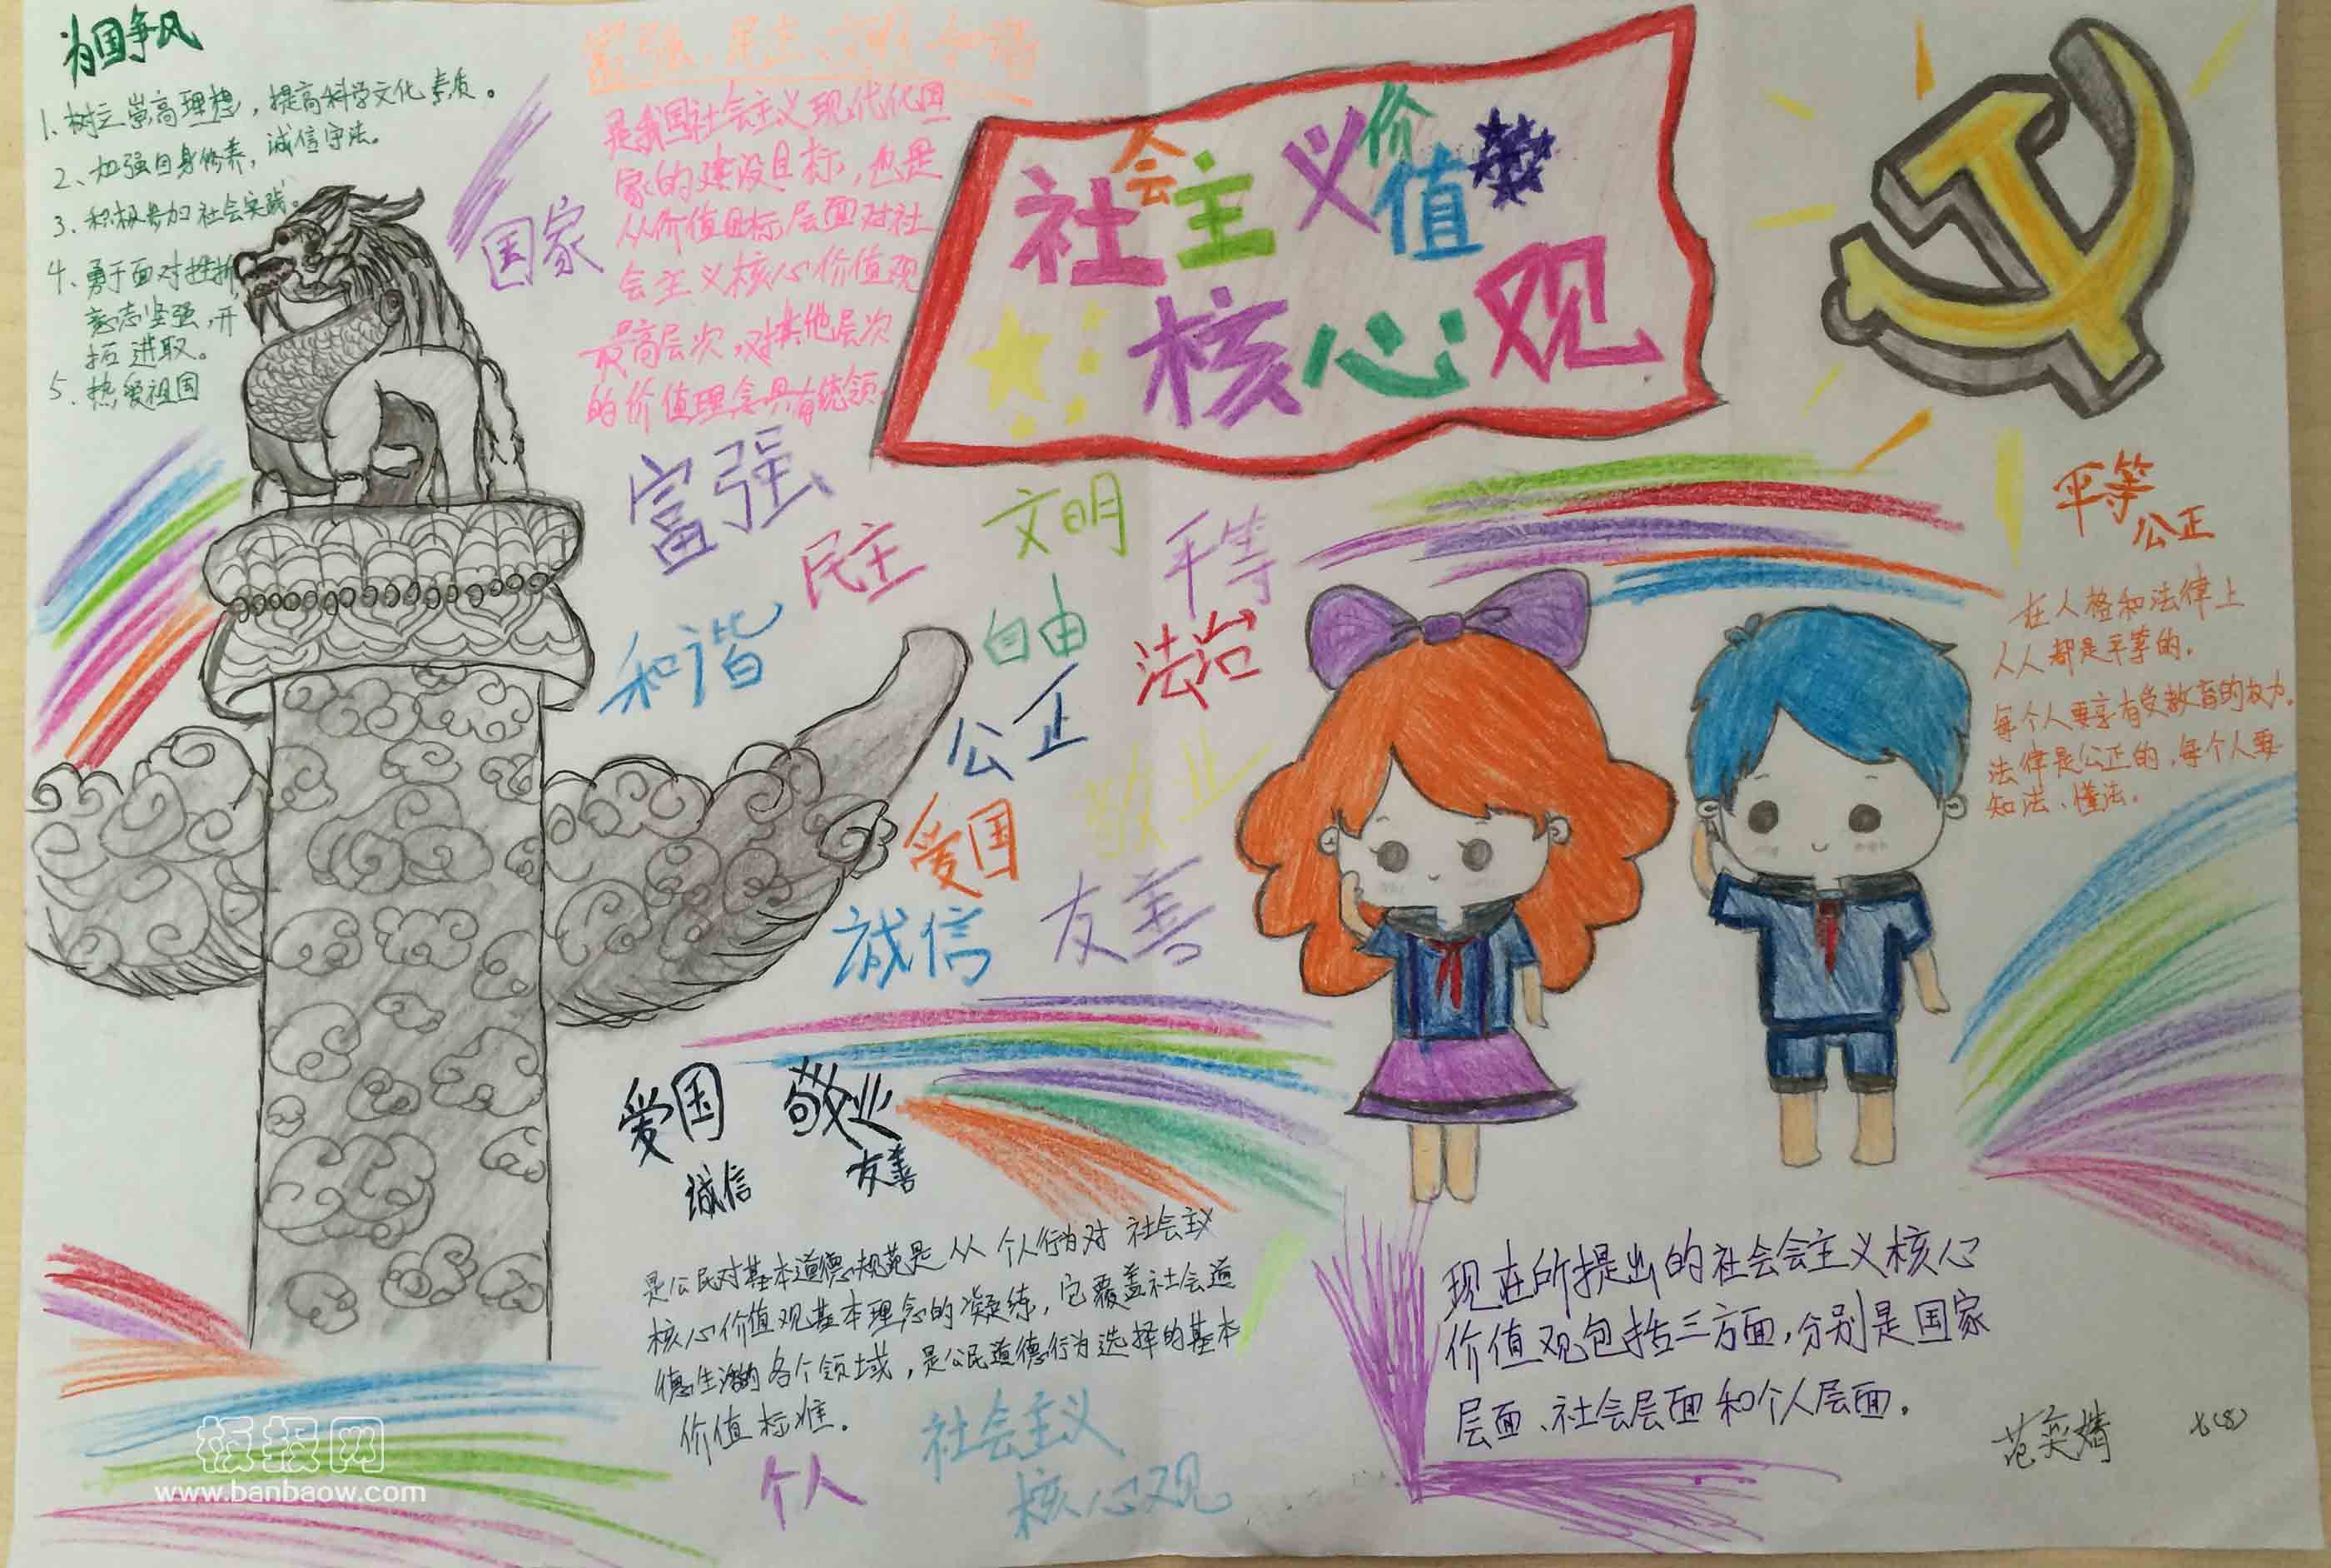 为国争风
1、树立崇高理想，提高科学文化素质。
2、加强自身修养，诚信守法。
3、积极参加社会实践。
4、勇于面对挫折
意志坚强，开
拓进取。
5、热爱祖国
国家
富强、民主、文明、和谐
是我国社会主义现代化国
家的建设目标，也是
从价值目标层面对社
会主义核心价值观
最高层次，对其他层次
的价值理念具有统领
社会主义价值
核心观
富强
民主
文明
平等
和谐
自由
法治
公正
敬业
爱国
诚信
友善
平等
公正
在人格和法律上
人人都是平等的。
每个人要享有受教育的权力。
法律是公正的，每个人要
知法、懂法。
爱国 敬业
诚信 友善
是公民对基本道德规范是从个人行为对社会主义
核心价值观基本理念的凝练，它覆盖社会道
德生活的各个领域，是公民道德行为选择的基本
价值标准。
个人
社会主义
核心观
现在所提出的社会会主义核心
价值观包括三方面，分别是国家
层面、社会层面和个人层面。
范奕婧 七(8)
板报网
www.banbaow.com